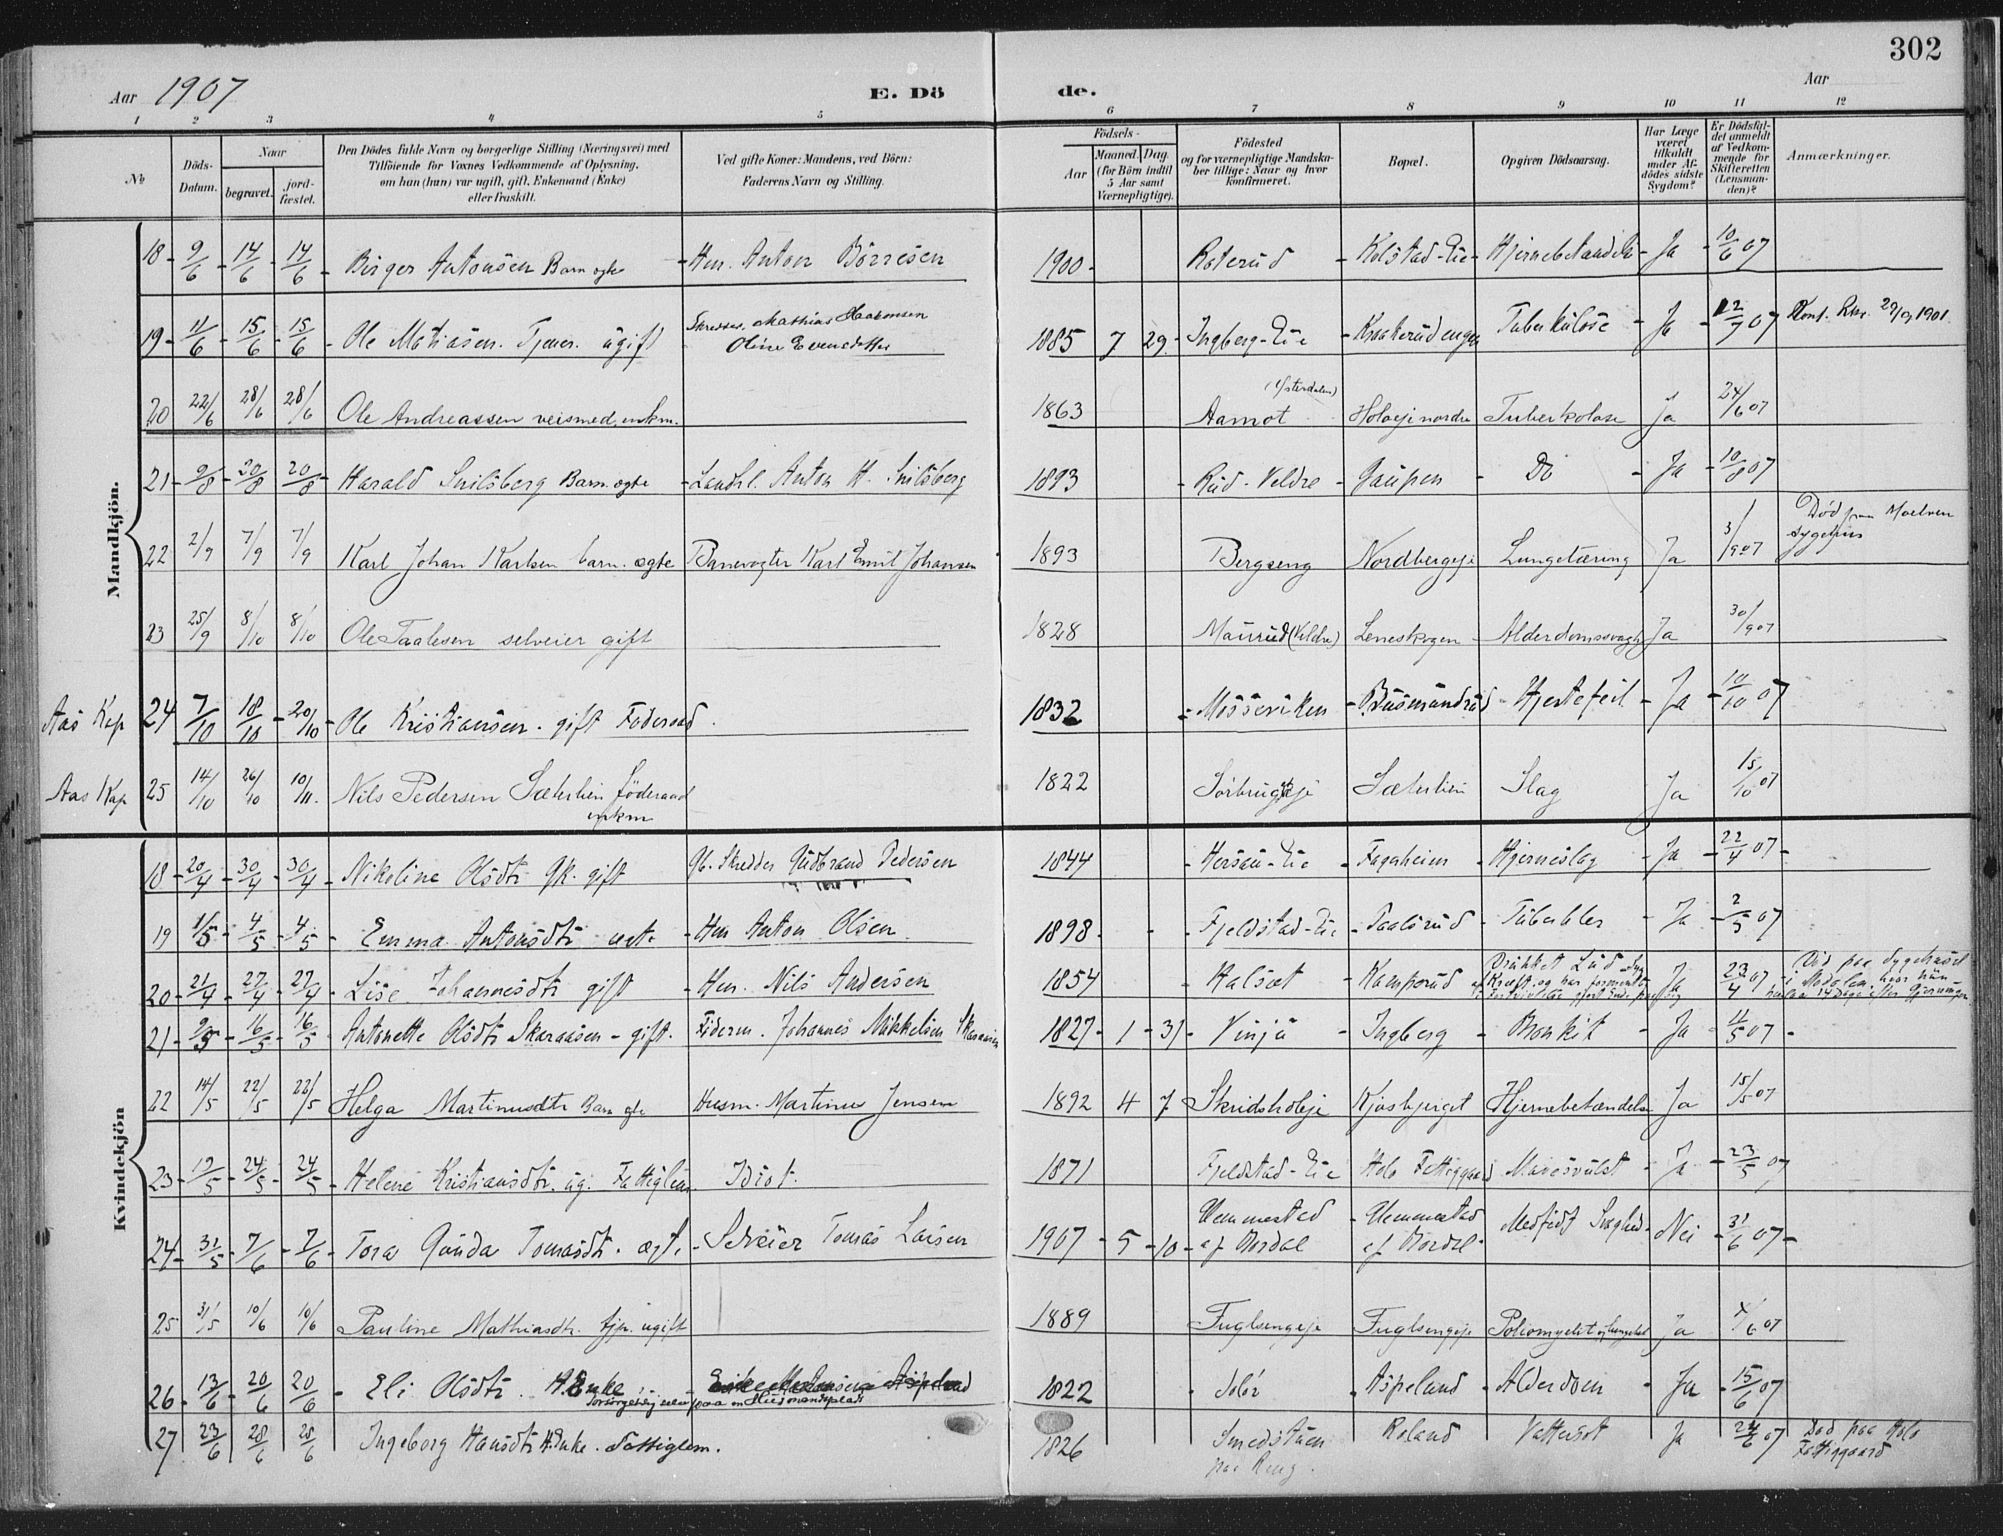 302
Aar 1907
E. Döde.
Aar
1 2 3 4 5 6 7 8 9 10 11 12
№
Döds-Datum.
Naar
begravet.
jord-fæstet.
Den Dödes fulde Navn og borgerlige Stilling (Næringsvei) med
Tilföiende for Voxnes Vedkommende af Oplysning,
om han (hun) var ugift, gift, Enkemand (Enke)
eller fraskilt.
Ved gifte Koner: Mandens, ved Börn:
Faderens Navn og Stilling.
Födsels-
Aar
Maaned. Dag.
(for Börn indtil 5 Aar samt Værnepligtige).
Födested
og for værnepligtige Mandskaber tillige: Naar og hvor konfirmeret.
Bopæl.
Opgiven Dödsaarsag.
Har Læge været tilkaldt under Afdödes sidste Sygdom?
Er Dödsfaldet anmeldt af Vedkommende for Skifteretten (Lensmanden)?
Anmærkninger.
Mandkjön.
18 9/6 14/6 14/6 Birger Antonsen Barn ægte Hm. Anton Börresen 1900 Roterud Kolstad-Eie Hjernebetændelse Ja 10/6 07
19 11/6 15/6 15/6 Ole Matiasen. Tjener. ugift Mathias Haakonsen
Oline Evensdatter 1885 7 29 Ingberg-Eie Tuberkulose Ja 07 1901
20 22/6 28/6 28/6 Ole Andreassen veismed, enkm. 1863 (Østerdalen)
Aamot Holoeje nordre Tuberkolose Ja 24/6 07
21 9/8 20/8 20/8 Harald Snilsberg Barn ægte Anton H. Snilsberg 1893 Rud. Veldre Gaupen Do Ja 10/8 07
22 2/9 7/9 7/9 Karl Johan Karlsen barn. ægte Banevogter Karl Emil Johansen 1893 Bergseng Nordbergeje Lungetæring Ja 3/9 07 Död paa Moelven
sygehus
23 25/9 8/10 8/10 Ole Taalesen selveier gift 1828 Maurud (Veldre) Leneskogen Ja 30/9 07
Aas Kap 24 7/10 18/10 20/10 Ole Kristiansen. gift Föderaad. 1832 Mosseviken Busmundrud Hjertefeil Ja 10/10 07
Aas Kap 25 14/10 26/10 10/11. Nils Pedersen Sæterlien föderaad
enkm 1822 Sæterlien Slag Ja 15/10 07
Kvindekjön
18 20/4 30/4 30/4 Nikoline Olsdtr Gk. gift Skredder Gudbrand Pedersen 1844 Hersau-Eie Fagaheim Hjerneslag Ja 22/4 07
19 1/5 4/5 4/5 Emma Antonsdtr ægte Hm Anton Olsen 1898 Fjeldstad-Eie Taalsrud Tuberkler Ja 2/5 07
20 21/4 27/4 27/4 Lise Johannesdtr gift Hm. Nils Andersen 1854 Halsæt Kamperud Ja 23/4 07 Död paa Sygehuset
21 9/5 16/5 16/5 Antonette Olsdtr Skaraasen - gift. Föderm. Johannes Mikkelsen Skaraasen 1827 1 31 Vinju Ingberg Bronkit Ja 11/5 07
22 14/5 22/5 22/5 Helga Martinusdtr Barn ægte Husm. Martinus Jensen 1892 4 7 Skridsholeje Kjosbjerget Hjernebetændelse Ja 15/5 07
23 19/5 24/5 24/5 Helene Kristiansdtr. ug. Fattiglem Idiot. 1871 Fjeldstad-Eie Holo Fattiggaard Mavesvulst Ja 23/5 07
24 31/5 7/6 7/6 Tora Gunda Tomasdtr. ægte Selveier Tomas Larsen 1907 5 10 Hemmestad
af Bordal Hemmestad
af Bordal Medfödt Svaghed Nei 31/6 07
25 31/5 10/6 10/6 Pauline Mathiasdtr. tjp. ugift 1889 Fuglsengeje Fuglsengeje Ja 07
26 13/6 20/6 20/6 Eli Olsdtr. Enke paa en Husmandsplads 1822 Solör Aspelund Alderdom Ja 15/6 07
27 23/6 28/6 28/6 Ingeborg Hansdtr H. Enke. Fattiglem. 1826 Smedstuen
paa Ring. Roland Vattersot Ja 24/6 07 Död paa Holo
Fattiggaard